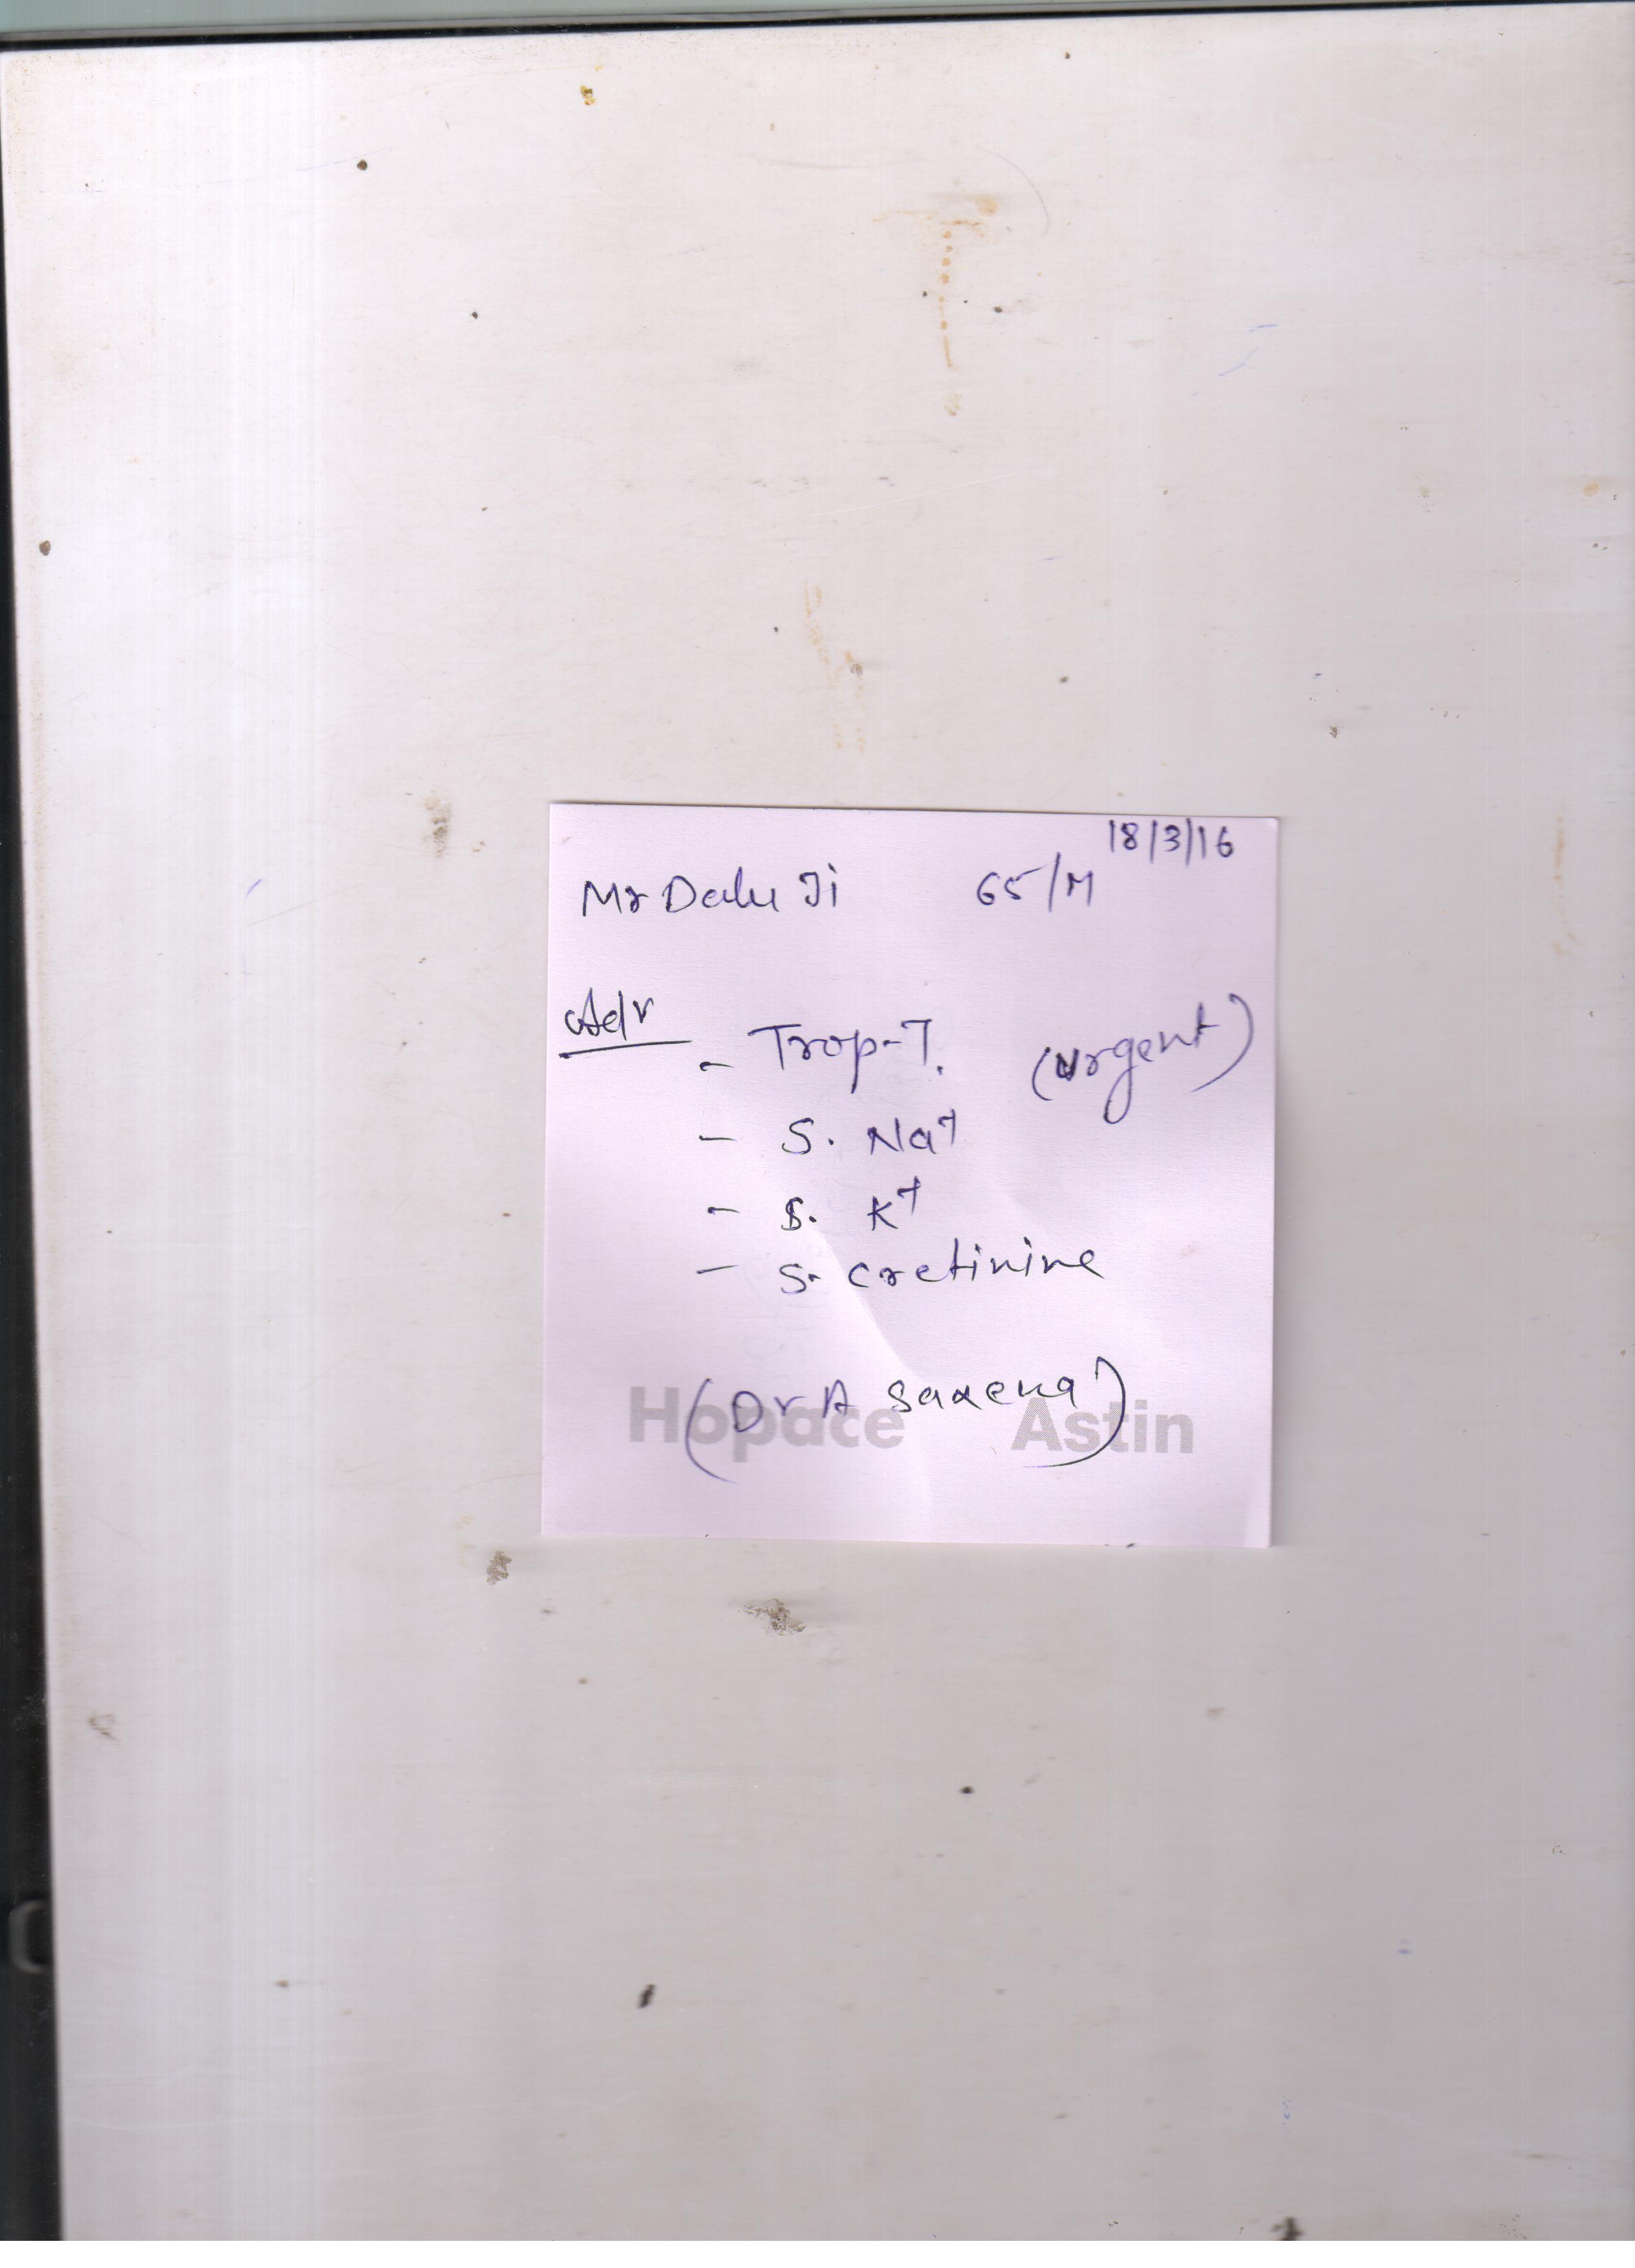 18/3/16
Mr Dalu Ji 65/M
Adv
- Trop-T. (Urgent)
- S. Na+
- S. K+
- S. cretinine
(Dr A Saxena)
Hopace Astin